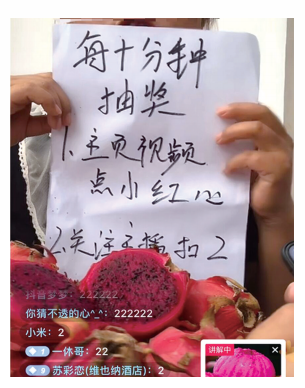 每十分钟
抽奖
1.主页视频
点小红心
2.关注主播扣2
抖音梦梦：222222
你猜不透的心^.^：222222
小米：2
7 一休哥：22
9 苏彩恋(维也纳酒店)：2
讲解中
×